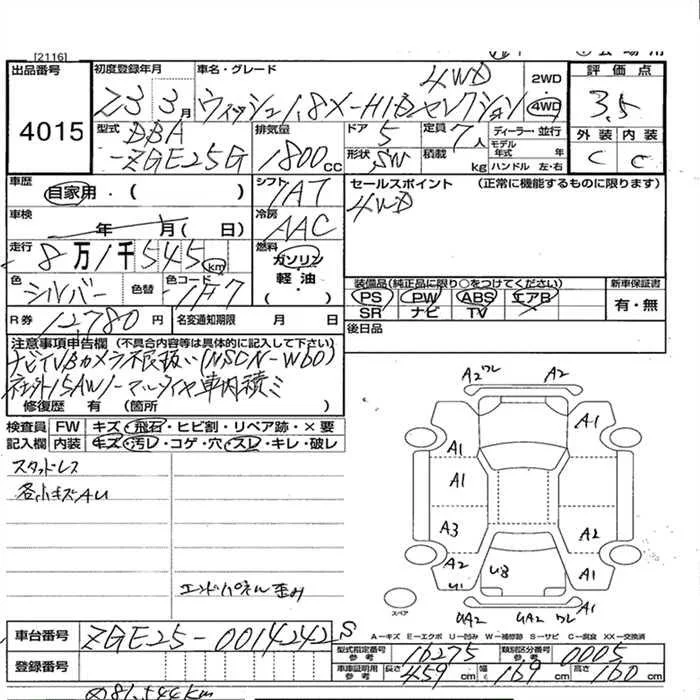 [2116]
出品番号
4015
初度登録年月
23 3月
車名・グレード
4WD
ウィッシュ1.8X-HIDセレクション
2WD
4WD
評価点
3.5
外装 内装
C C
型式
DBA
-ZGE25G
排気量
1800cc
ドア 5
定員 7人
形状 SW
積載 kg
ディーラー・並行
モデル年式 年
ハンドル 左・右
車歴
自家用・( )
シフト
7AT
セールスポイント (正常に機能するものに限ります)
4WD
車検
年 月( 日)
冷房
AAC
走行
8万1千545km
燃料
ガソリン
軽油・
色
シルバー
色替
色コード
1F7
装備品(純正品に限り○をつけてください)
PS PW ABS エアB
SR ナビ TV
新車保証書
有・無
R券 12,780円
名変通知期限 月 日
後日品
注意事項申告欄 (不具合内容等は具体的に記入して下さい)
ナビTVBカメラ不良扱い(NSCN-W60)
社外15AWノーマルタイヤ車内積ミ
修復歴 有 (箇所 )
検査員 FW キズ・飛石・ヒビ割・リペア跡・×要
記入欄 内装 キズ・汚レ・コゲ・穴・スレ・キレ・破レ
スタッドレス
各小キズAU
エンドパネル歪み
A2ワレ A2
A1
A1
A1
A3 A2
A2 U3
U1 A1 A1
スペア
UA2 UA2ワレ
A-キズ E-エクボ U-凹み W-補修跡 S-サビ C-腐食 XX-交換済
車台番号 ZGE25-0014242 S
登録番号
型式指定番号参考 16275
類別区分番号参考 0005
車庫証明用参考 長さ 459cm 幅 169cm 高さ 160cm
81,544km